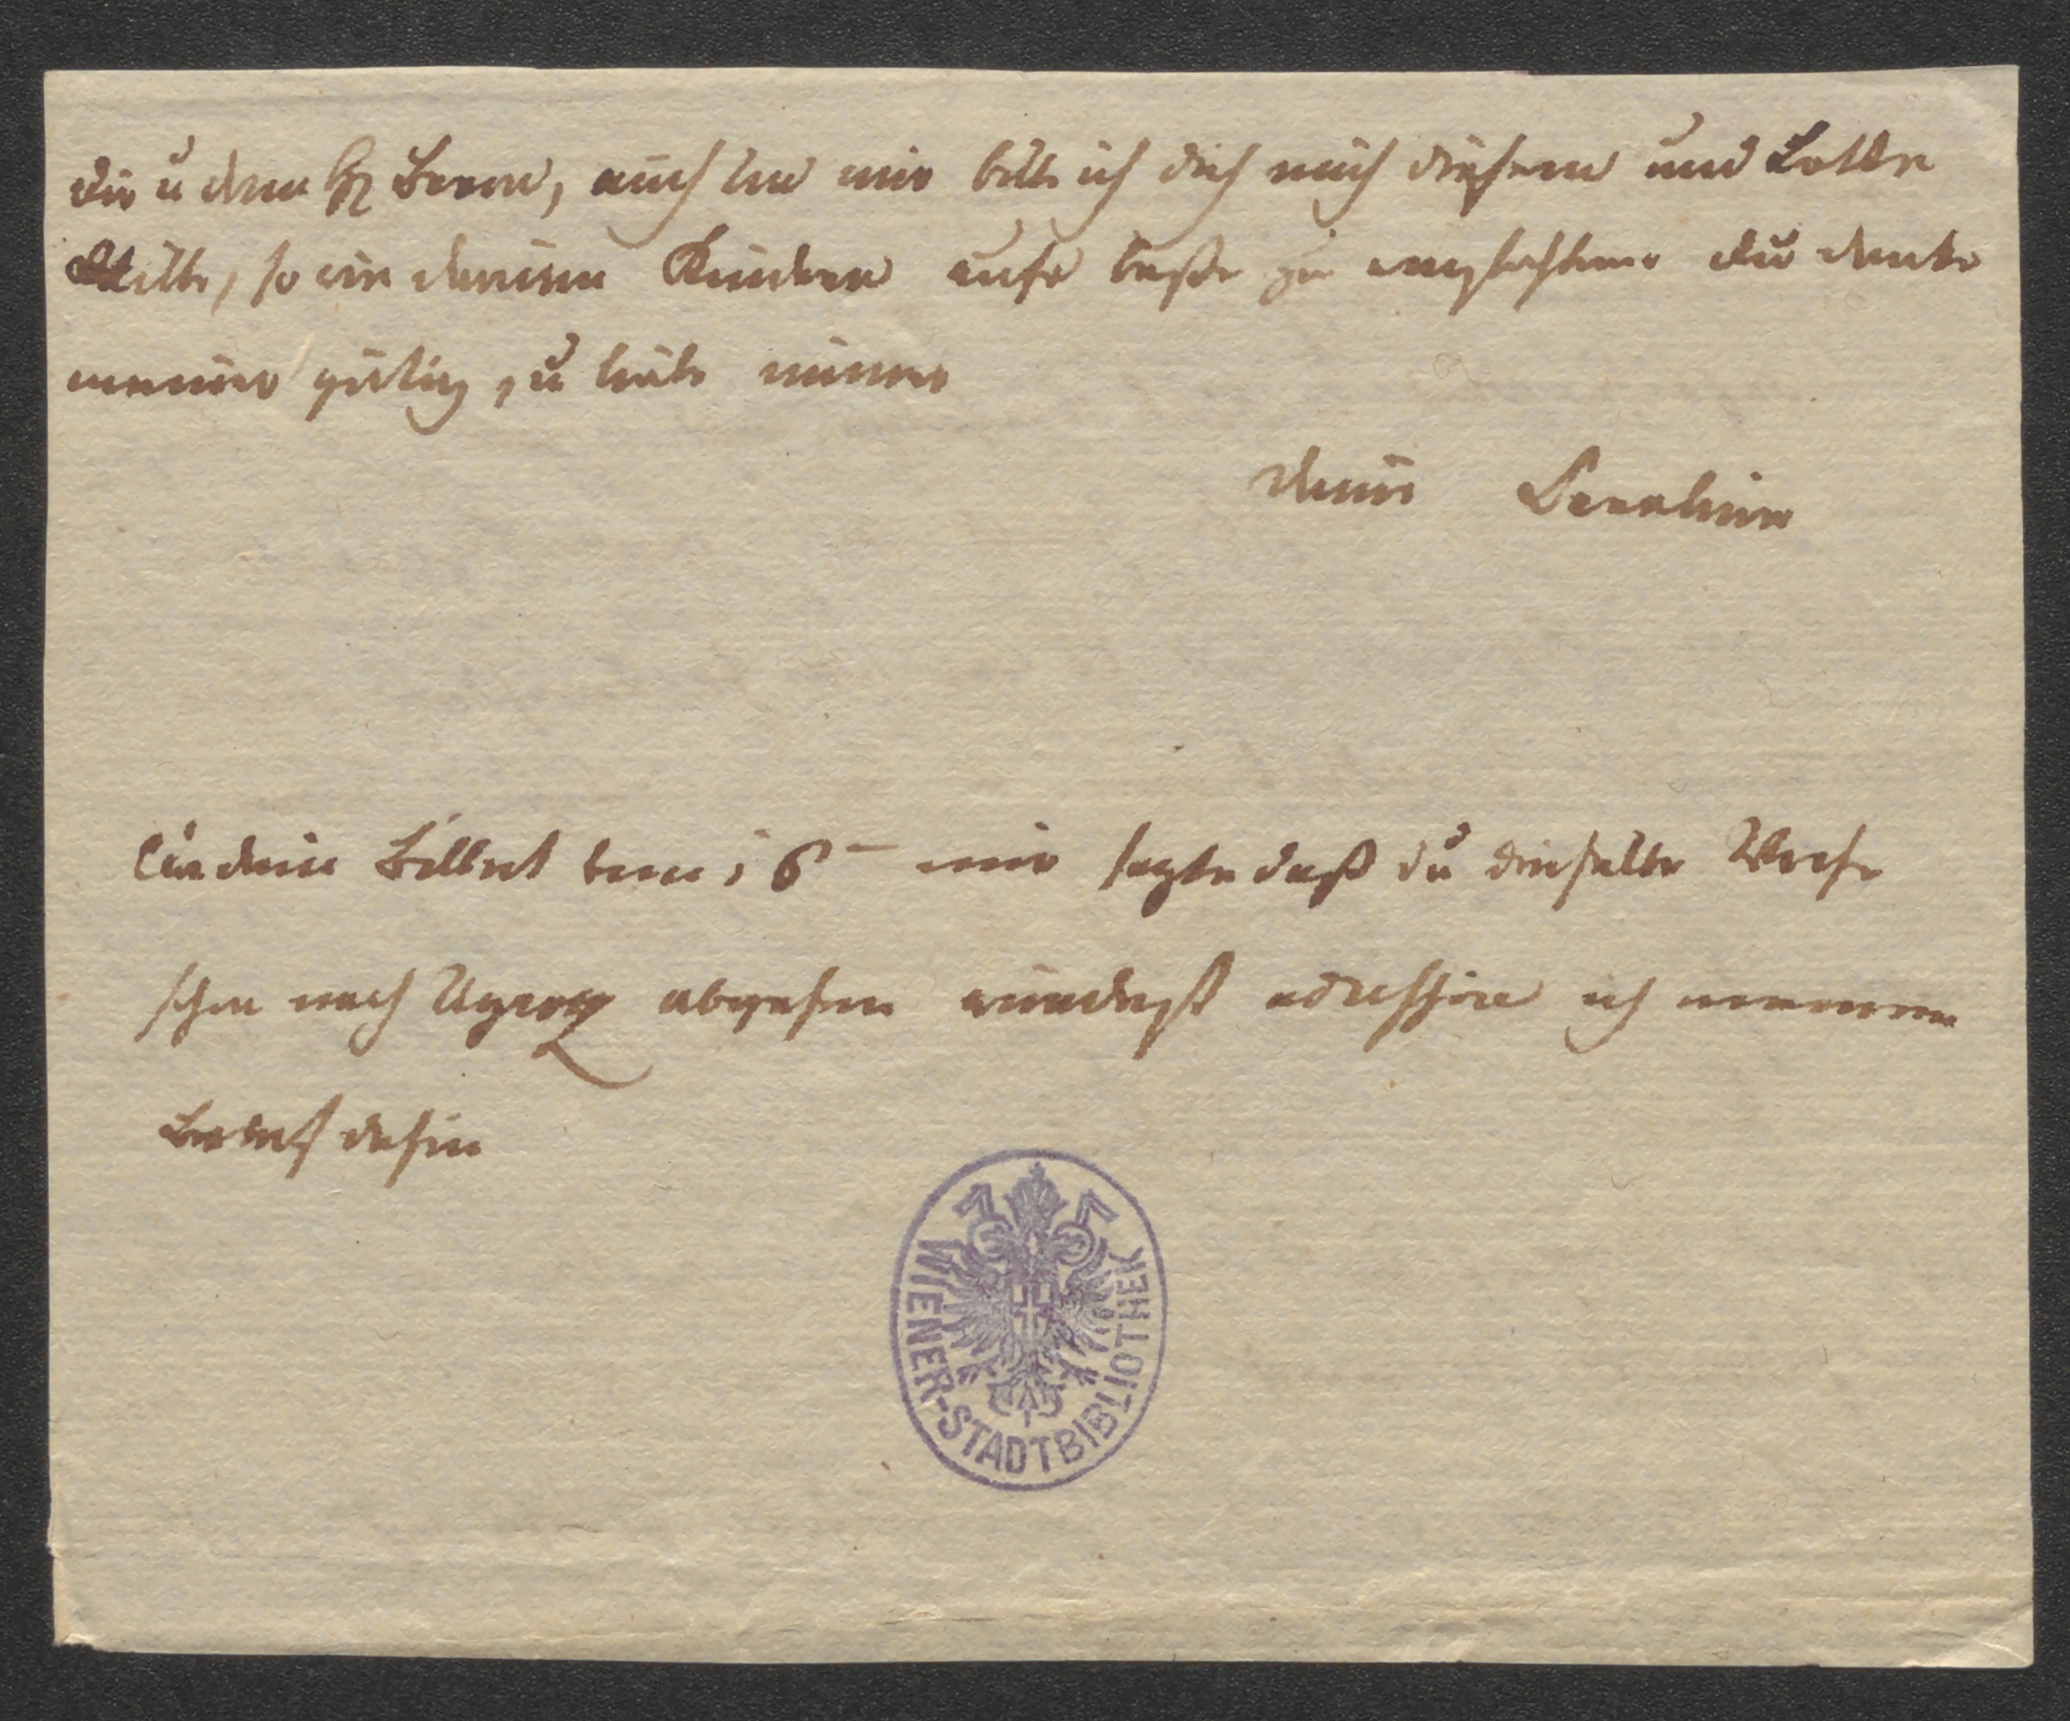 dir u dem H Baron, auch von mir bitte ich dich mich diesem und
so wie deinen Kindern aufs beste zu empfehlen du denke
meiner gütig, u liebe immer
deine Caroline
dein Billiet vom 16 mir sagte daß du dieselbe Woche
schon nach Ugrocz abgehen würdest adressire ich meinen
Brief dahin
WIENER-STADTBIBLIOTHEK